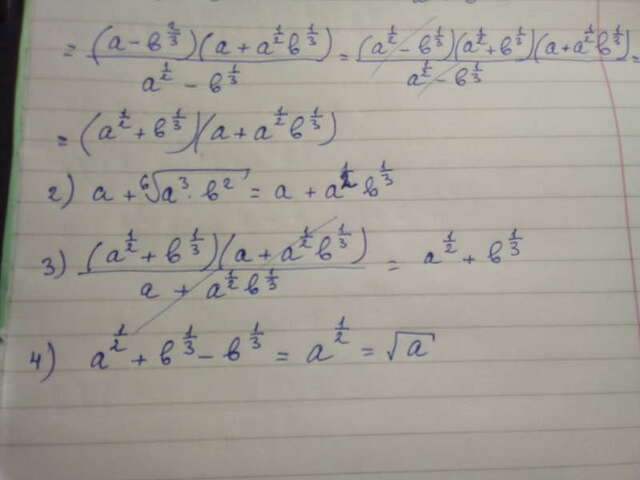 = (a - b^(2/3))(a + a^(1/2) b^(1/3)) / (a^(1/2) - b^(1/3)) = (a^(1/2) - b^(1/3))(a^(1/2) + b^(1/3))(a + a^(1/2) b^(1/3)) / (a^(1/2) - b^(1/3)) =
= (a^(1/2) + b^(1/3))(a + a^(1/2) b^(1/3))
2) a + ⁶√(a³ · b²) = a + a^(1/2) b^(1/3)
3) (a^(1/2) + b^(1/3))(a + a^(1/2) b^(1/3)) / (a + a^(1/2) b^(1/3)) = a^(1/2) + b^(1/3)
4) a^(1/2) + b^(1/3) - b^(1/3) = a^(1/2) = √a